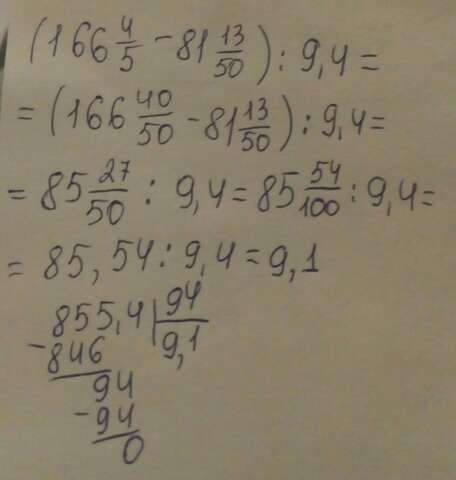 (166 4/5 - 81 13/50) : 9,4 =
= (166 40/50 - 81 13/50) : 9,4 =
= 85 27/50 : 9,4 = 85 54/100 : 9,4 =
= 85,54 : 9,4 = 9,1
855,4 | 94
- 846 | 9,1
94
- 94
0